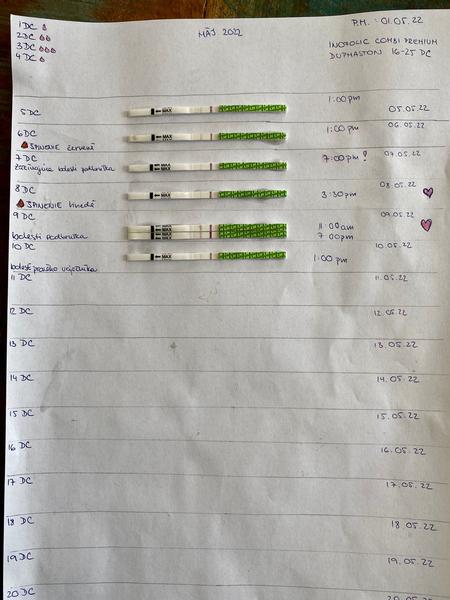 1 DC
2 DC
3 DC
4 DC
MÁJ 2022
P.M. : 01.05.22
INOFOLIC COMBI PREMIUM
DUPHASTON 16-25 DC
5 DC
MAX
1:00 pm
05.05.22
6 DC
MAX
1:00 pm
06.05.22
ŠPINENIE červené
7 DC
MAX
7:00 pm !
07.05.22
bolesti podbruška
8 DC
MAX
3:30 pm
08.05.22
ŠPINENIE hnedé
9 DC
09.05.22
MAX
11:00 am
bolesti podbruška
MAX
7:00 pm
10 DC
MAX
1:00 pm
10.05.22
11 DC
11.05.22
12 DC
12.05.22
13 DC
13.05.22
14 DC
14.05.22
15 DC
15.05.22
16 DC
16.05.22
17 DC
17.05.22
18 DC
18.05.22
19 DC
19.05.22
20 DC
20.05.22